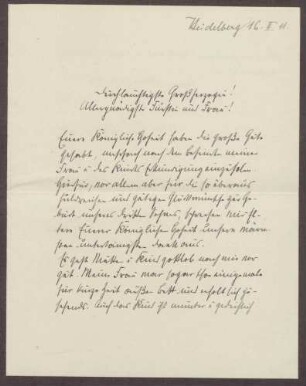 Heidelberg 16. V. 11.
Durchlauchtigste Großherzogin!
Allergnädigste Fürstin und Frau!
Eure Königliche Hoheit haben die große Güte
gehabt, nach dem Befinden meiner
Frau u. des Kindes Erkundigung einzuziehen
vor allem aber für die so überaus
huldreichen und gütigen Glückwünsche zur Ge-
burt unseres dritten Sohnes, sprechen wir bei-
den Eurer Königlichen Hoheit unseren wärm-
sten untertänigsten Dank aus.
Es geht Mutter u. Kind gottlob nach wie vor
gut. Meine Frau war sogar schon einigemale
für kurze Zeit außer Bett und erholt sich zu-
sehends. Auch das Kind ist munter u. gedeihlich